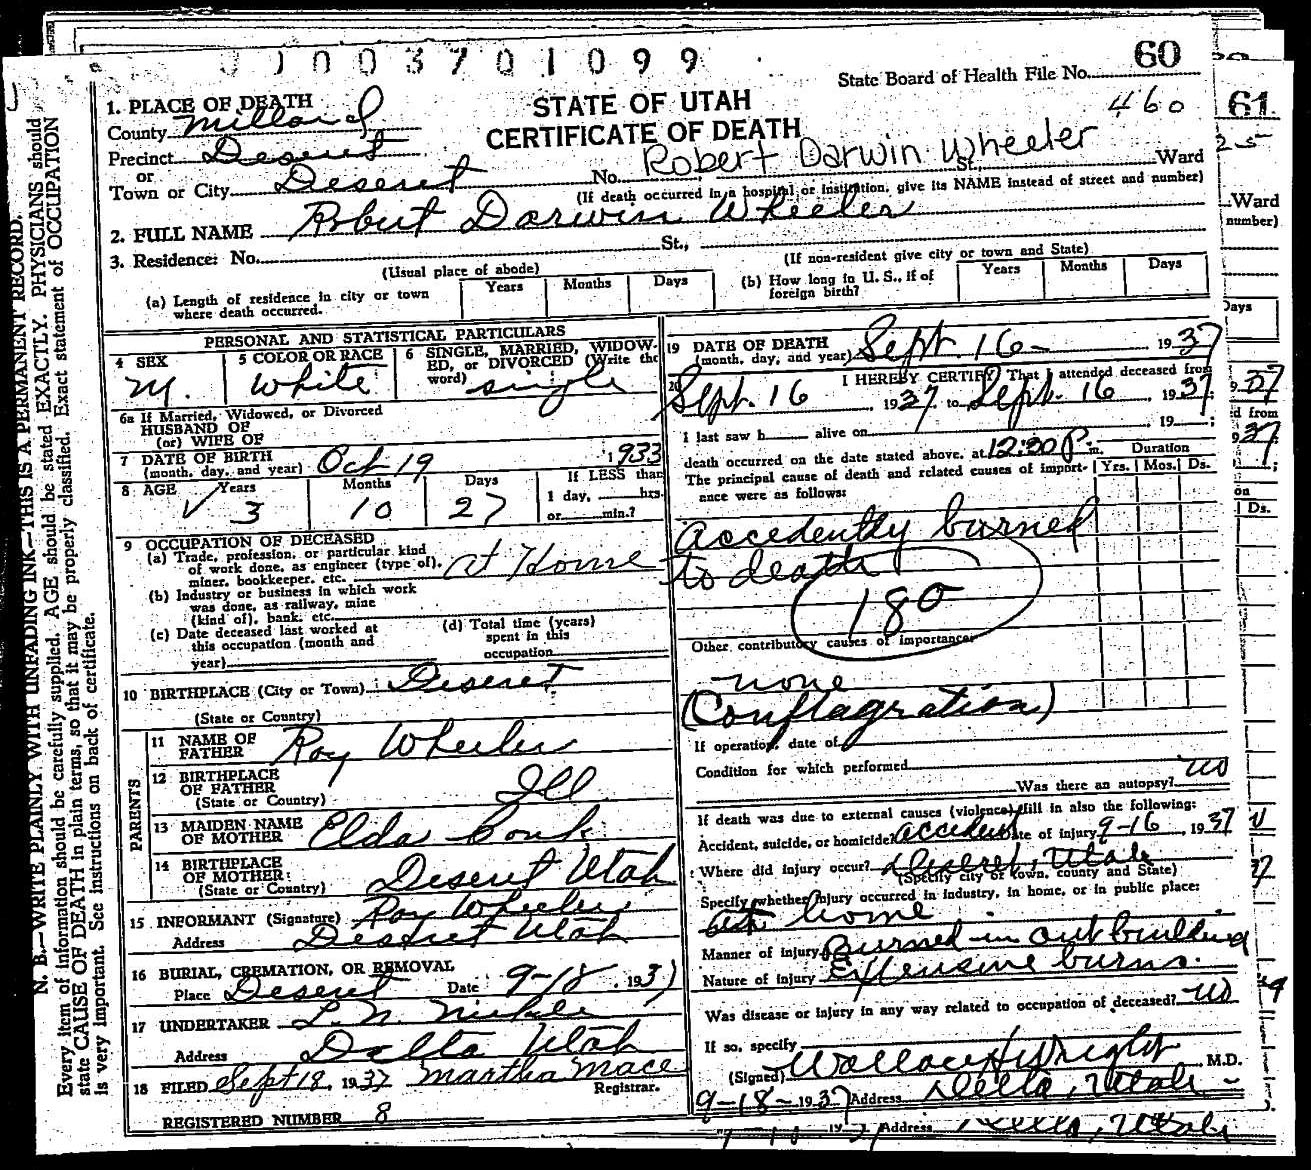 0003701099
State Board of Health File No. 60
460
1. PLACE OF DEATH
STATE OF UTAH
County Millard
CERTIFICATE OF DEATH
Precinct Deseret
Robert Darwin Wheeler
or
Town or City Deseret No. St., Ward
(If death occurred in a hospital or institution, give its NAME instead of street and number)
2. FULL NAME Robert Darwin Wheeler
3. Residence: No. St.,
(Usual place of abode)
(If non-resident give city or town and State)
(a) Length of residence in city or town where death occurred. Years Months Days
(b) How long in U. S., if of foreign birth? Years Months Days
PERSONAL AND STATISTICAL PARTICULARS
4 SEX M.
5 COLOR OR RACE White
6 SINGLE, MARRIED, WIDOWED, or DIVORCED (Write the word) single
6a If Married, Widowed, or Divorced
HUSBAND OF
(or) WIFE OF
7 DATE OF BIRTH
(month, day, and year) Oct 19 1933
8 AGE Years Months Days If LESS than
3 10 27 1 day, hrs.
or min.?
9 OCCUPATION OF DECEASED
(a) Trade, profession, or particular kind
of work done, as engineer (type of),
miner, bookkeeper, etc. at Home
(b) Industry or business in which work
was done, as railway, mine
(kind of), bank, etc.
(c) Date deceased last worked at
this occupation (month and
year)
(d) Total time (years)
spent in this
occupation
10 BIRTHPLACE (City or Town) Deseret
(State or Country)
PARENTS
11 NAME OF FATHER Roy Wheeler
12 BIRTHPLACE OF FATHER
(State or Country) Ill
13 MAIDEN NAME OF MOTHER Elda
14 BIRTHPLACE OF MOTHER
(State or Country) Deseret Utah
15 INFORMANT (Signature) Roy Wheeler
Address Deseret Utah
16 BURIAL, CREMATION, OR REMOVAL
Place Deseret Date 9-18, 1937
17 UNDERTAKER L. N.
Address Delta Utah
18 FILED Sept 18, 1937 Martha Mace
Registrar.
REGISTERED NUMBER 8
19 DATE OF DEATH
(month, day, and year) Sept. 16 - 1937
20 I HEREBY CERTIFY That I attended deceased from
Sept. 16, 1937, to Sept. 16, 1937
I last saw h alive on 19 ;
death occurred on the date stated above, at 12:30 P. m.
The principal cause of death and related causes of importance were as follows:
Duration
Yrs. Mos. Ds.
Accedently burned
to death
180
Other contributory causes of importance:
none
(Conflagration)
If operation, date of
Condition for which performed
Was there an autopsy? no
If death was due to external causes (violence) fill in also the following:
Accident, suicide, or homicide? accident Date of injury 9-16, 1937
Where did injury occur? Deseret, Utah
(Specify city or town, county and State)
Specify whether injury occurred in industry, in home, or in public place:
at home
Manner of injury Burned in out building
Nature of injury Extensive burns.
Was disease or injury in any way related to occupation of deceased? no
If so, specify
(Signed) Wallace H Wright M.D.
9-18-1937 Address Delta, Utah
Address Delta, Utah
N. B.—WRITE PLAINLY WITH UNFADING INK—THIS IS A PERMANENT RECORD.
Every item of information should be carefully supplied. AGE should be stated EXACTLY. PHYSICIANS should
state CAUSE OF DEATH in plain terms, so that it may be properly classified. Exact statement of OCCUPATION
is very important. See instructions on back of certificate.
61
25
Ward
number)
Days
d from
37
on
Ds.